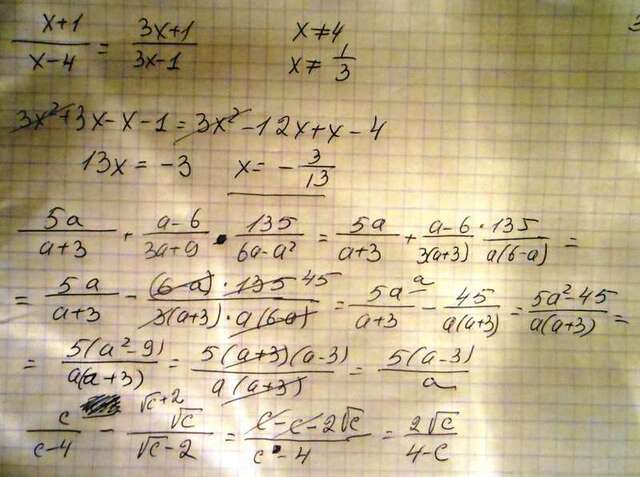 (x+1)/(x-4) = (3x+1)/(3x-1) x≠4
x≠ 1/3
3x²+3x-x-1=3x²-12x+x-4
13x = -3 x= - 3/13
5a/(a+3) + (a-6)/(3a+9) · 135/(6a-a²) = 5a/(a+3) + (a-6)·135/(3(a+3) a(6-a)) =
= 5a/(a+3) - (6-a)·135 45/(3(a+3)·a(6-a)) = 5a a/(a+3) - 45/(a(a+3)) = (5a²-45)/(a(a+3)) =
= 5(a²-9)/(a(a+3)) = 5(a+3)(a-3)/(a(a+3)) = 5(a-3)/a
c/(c-4) - √c √c+2/(√c-2) = (c-c-2√c)/(c-4) = 2√c/(4-c)